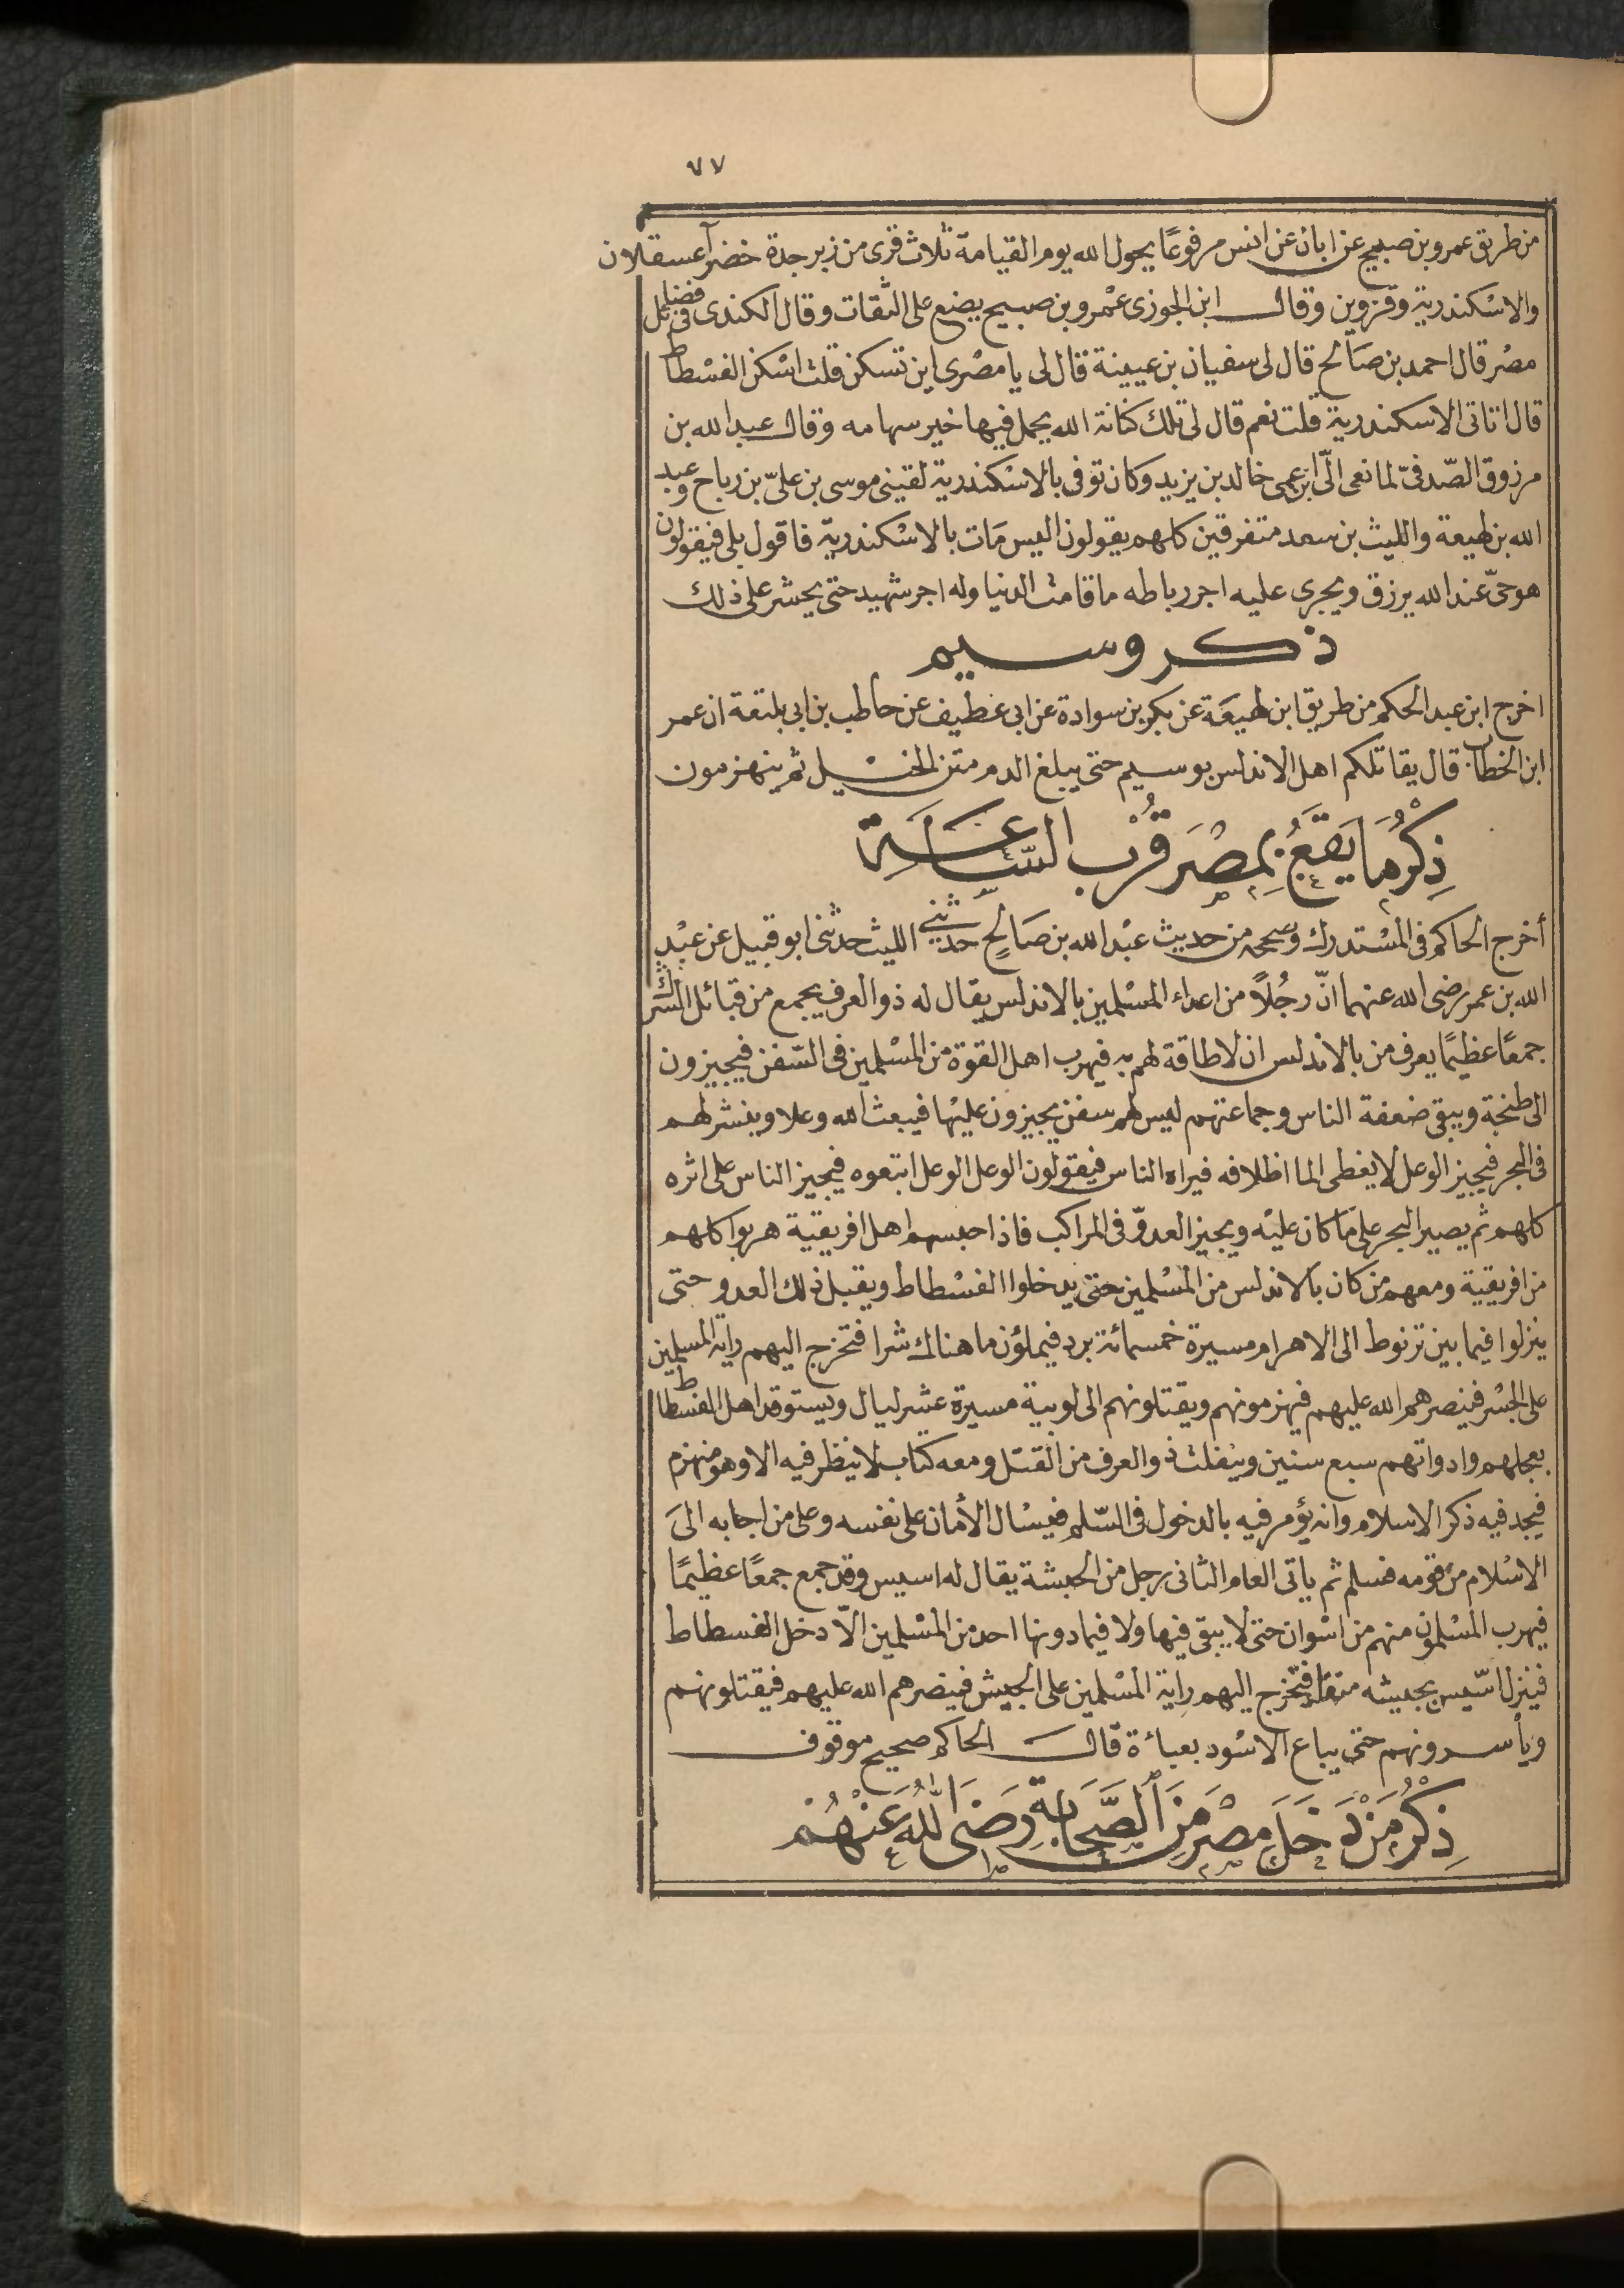 ٧٧
من طريق عمرو بن صبيح عن ابان عن انس مرفوعًا يحول الله يوم القيامة ثلاث قرى من زبرجدة خضرآ عسقلان
والاسْكندرية وقزوين وقال ابن الجوزى عمْرو بن صبيح يضع على الثقات وقال الكندى فى فضائل
مصْر قال احمد بن صَالح قال لى سفيان بن عيينة قال لى يا مصْرى اين تسكن قلت اسْكن الفسْطاط
قال اتاتى الاسكندرية قلت نعم قال لى تلك كنانة الله يجمل فيها خير سهامه وقال عبد الله بن
مرزوق الصّدفىّ لما نعى الىّ ابن عمى خالد بن يزيد وكان توفى بالاسْكندرية لقينى موسى بن علىّ بن رباح وعبد
الله بن لهيعة والليث بن سعد متفرقين كلهم يقولون اليس مَات بالاسْكندريّة فاقول بلى فيقولون
هو حىّ عند الله يرزق ويجرى عليه اجر رباطه ما قامت الدنيا وله اجر شهيد حتى يحشر على ذلك
ذكر وسيم
اخرج ابن عبد الحكم من طريق ابن لهيعَة عن بكر بن سوادة عن ابى عطيف عن حاطب بن ابى بلتعة ان عمر
ابن الخطاب قال يقاتلكم اهل الاندلس بوسيم حتى يبلغ الدم متن الخيل ثم ينهزمون
ذِكْرُ مَا يَقَعُ بِمِصْرَ قُرْبَ السَّاعَةِ
أخرج الحاكم فى المسْتدرك وصححه من حديث عبْد الله بن صَالحٍ حدثنى الليث حدثنى ابو قبيل عن عبْدِ
الله بن عمر رضى الله عنهما انّ رجُلاً من اعداء المسْلمين بالاندلس يقال له ذو العرف يجمع من قبائل الشرك
جمعًا عظيمًا يعرف من بالاندلس ان لا طاقة لهم به فيهرب اهل القوة من المسْلمين فى السّفن فيجيزون
الى طنجة ويبقى ضعفة الناس وجماعتهم ليس لهم سفن يجيزون عليْها فيبعث الله وعلا وينشر لهم
فى البحر فيجيز الوعل لا يغطى الما اظلافه فيراه الناس فيقولون الوعل الوعل ابتعوه فيجيز الناس على اثره
كلهم ثم يصير البحر على مَا كان عليْه ويجيز العدوّ فى المراكب فاذا احبسهم اهل افريقية هربوا كلهم
من افريقية ومعهم من كان بالاندلس من المسْلمين حتى يدخلوا الفسْطاط ويقبل ذلك العدو حتى
ينزلوا فيما بين ترنوط الى الاهرام مسيرة خمسمائة برد فيملؤن ما هنالك شرا فتخرج اليهم راية المسلمين
على الجسْر فينصرهم الله عليهم فيهزمونهم ويقتلونهم الى لوبية مسيرة عشر ليال ويستوقد اهل الفسْطاط
بعجلهم وادواتهم سبع سنين وينفلت ذو العرف من القتل ومعه كتاب لا ينظر فيه الا وهو منهزم
فيجد فيه ذكر الاسلام وانه يؤمر فيه بالدخول فى السّلم فيسْال الأمان على نفسه وعلى من اجابه الىَ
الاسْلام من قومه فسلم ثم ياتى العام الثانى رجل من الحبشة يقال له اسيس وقد جمع جمعًا عظيمًا
فيهرب المسْلمون منهم من اسْوان حتى لا يبقى فيها ولا فيما دونها احد من المسْلمين الاّ دخل الفسطاط
فينزل اسّيس بجيشه منف فتخرج اليهم راية المسْلمين على الجيش فينصرهم الله عليهم فيقتلونهم
ويأسرونهم حتى يباع الاسْود بعبائة قال الحاكم صحيح موقوف
ذِكْرُ مَنْ دَخَلَ مِصْرَ مِنَ الصَّحَابَةِ رَضَى اللّٰهُ عَنْهُمْ